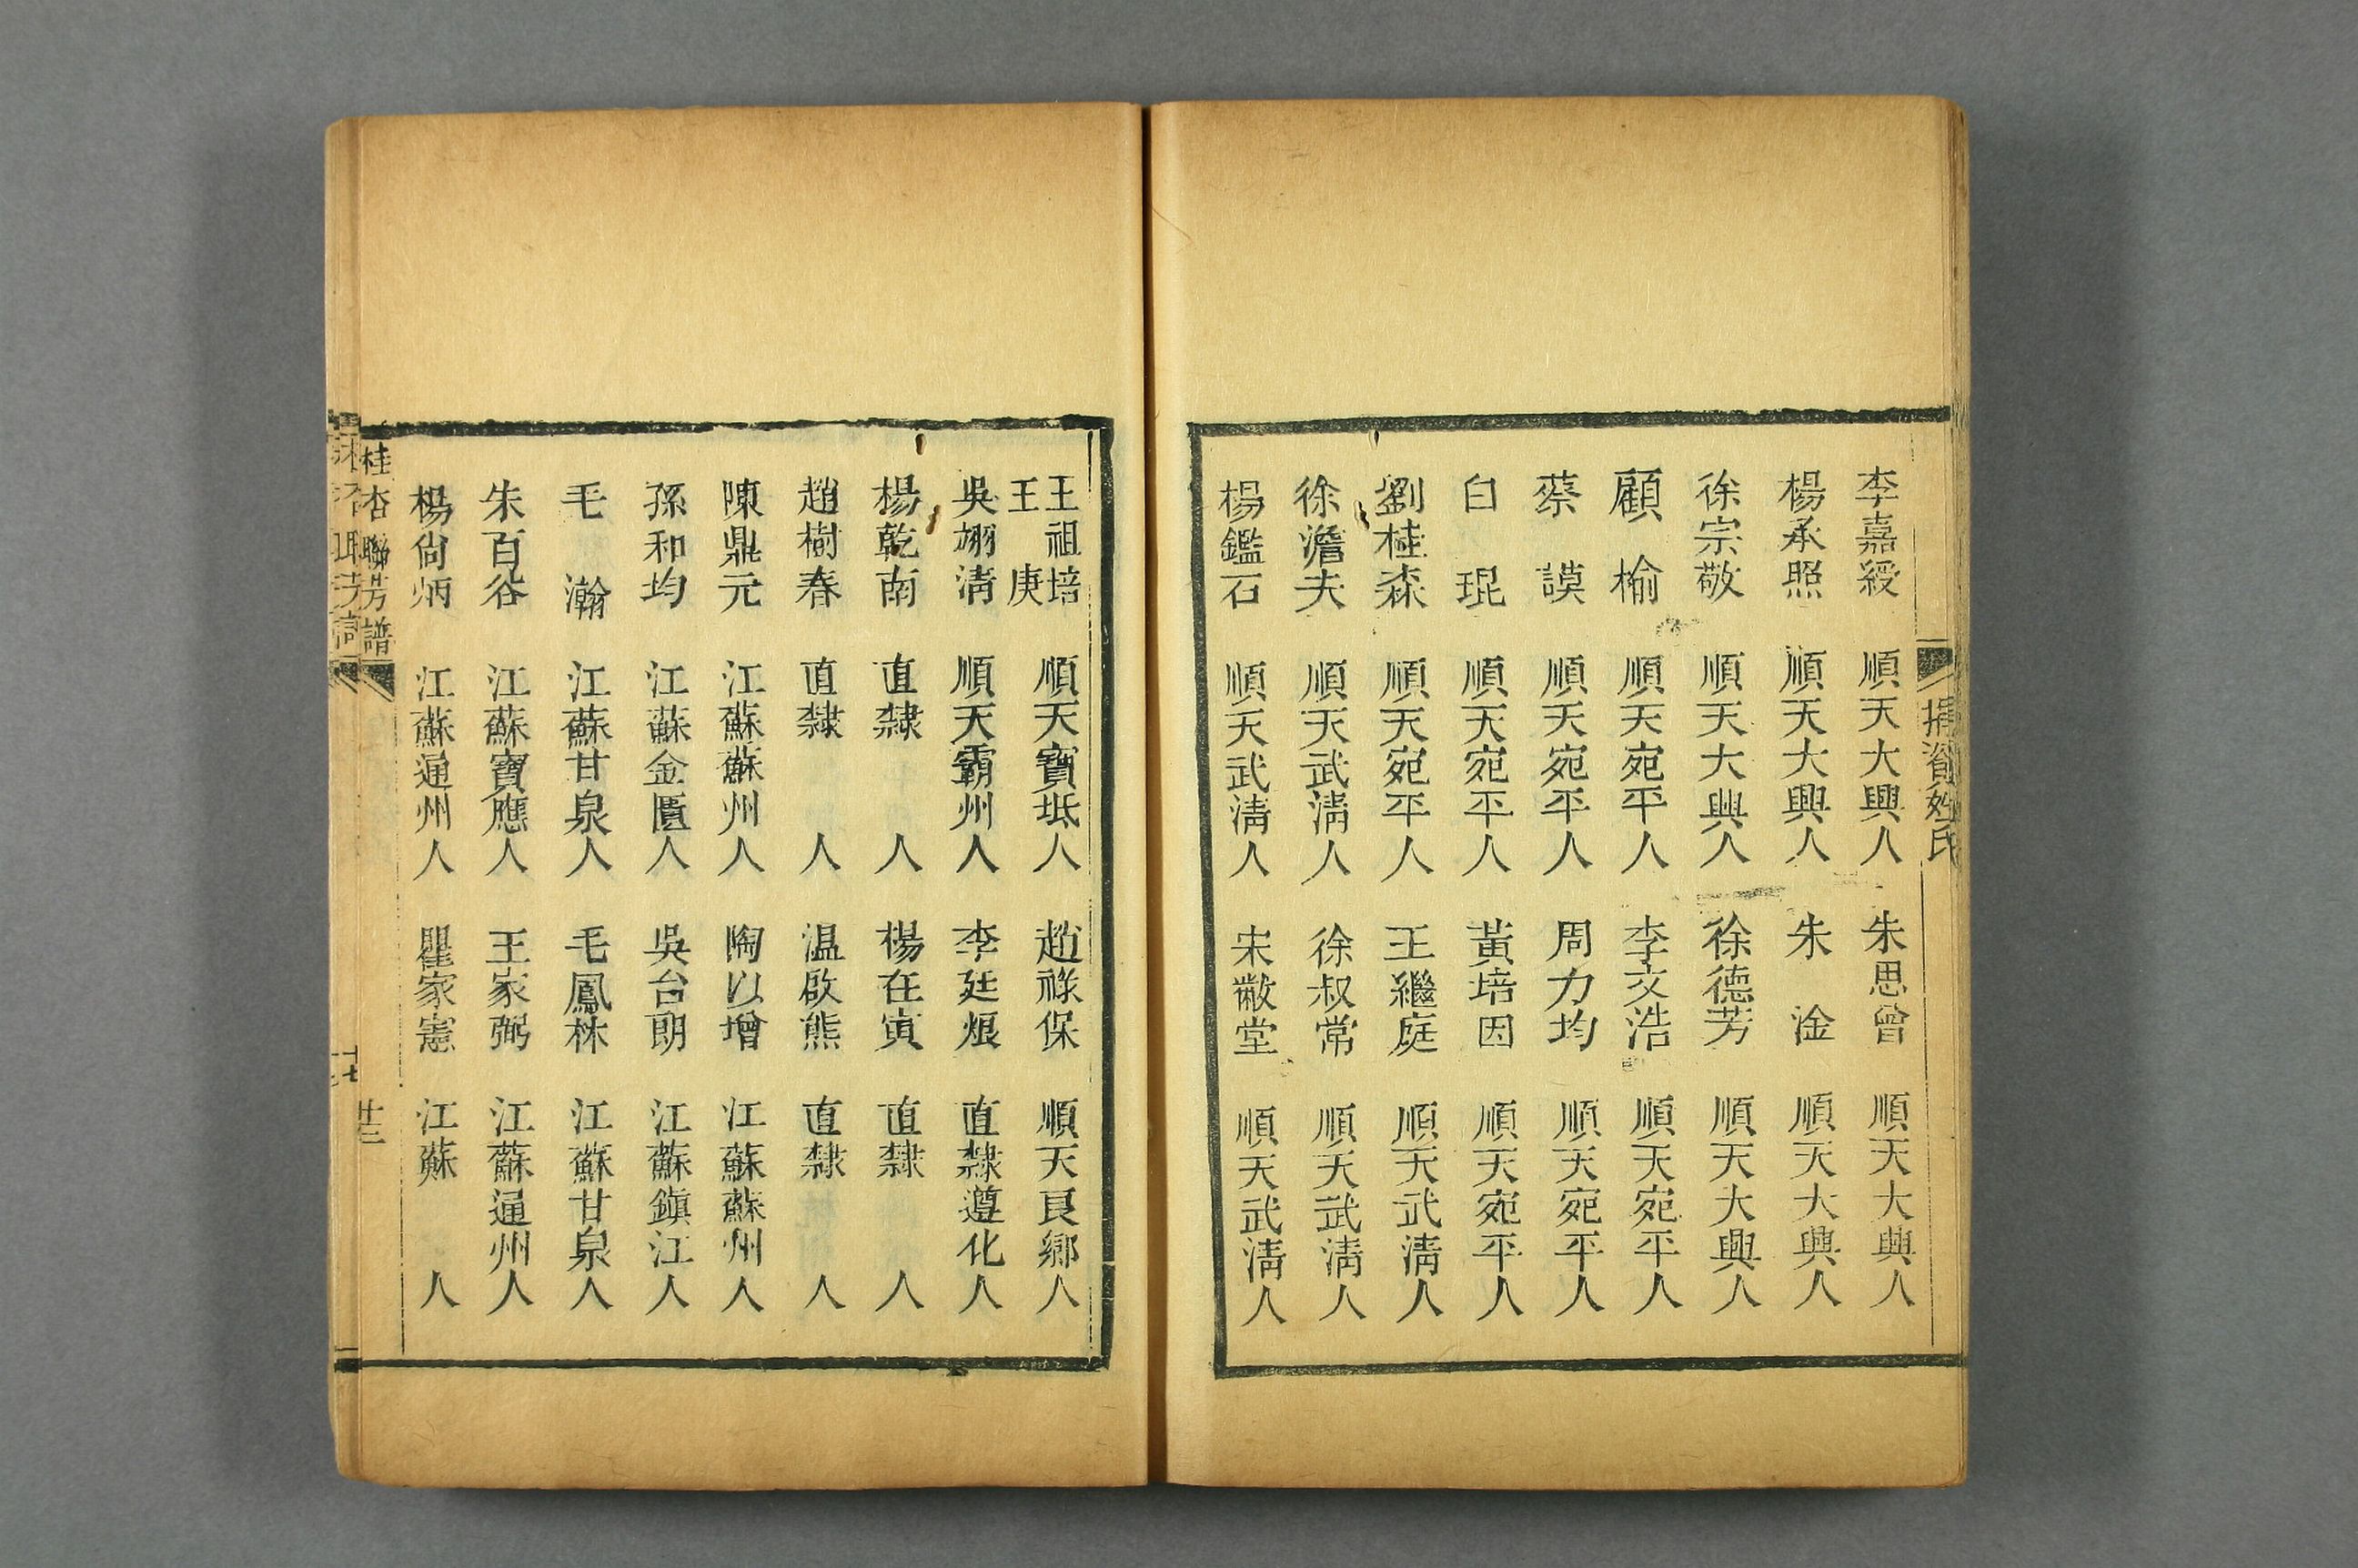 捐資姓氏
李嘉綬 順天大興人 朱思曾 順天大興人
楊承照 順天大興人 朱淦 順天大興人
徐宗敬 順天大興人 徐德芳 順天大興人
顧榆 順天宛平人 李文浩 順天宛平人
蔡謨 順天宛平人 周力均 順天宛平人
白琨 順天宛平人 黃培因 順天宛平人
劉桂森 順天宛平人 王繼庭 順天武淸人
徐澹夫 順天武淸人 徐叔常 順天武淸人
楊鑑石 順天武淸人 宋黻堂 順天武淸人
王祖培 王庚 順天寶坻人 趙祿保 順天良鄉人
吳翊淸 順天霸州人 李廷烺 直隸遵化人
楊乾南 直隸 人 楊在寅 直隸 人
趙樹春 直隸 人 温啟熊 直隸 人
陳鼎元 江蘇蘇州人 陶以增 江蘇蘇州人
孫和均 江蘇金匱人 吳台朗 江蘇鎭江人
毛瀚 江蘇甘泉人 毛鳳林 江蘇甘泉人
朱百谷 江蘇寶應人 王家弼 江蘇通州人
楊尙炳 江蘇通州人 瞿家憲 江蘇 人
桂杏聯芳譜 廿三